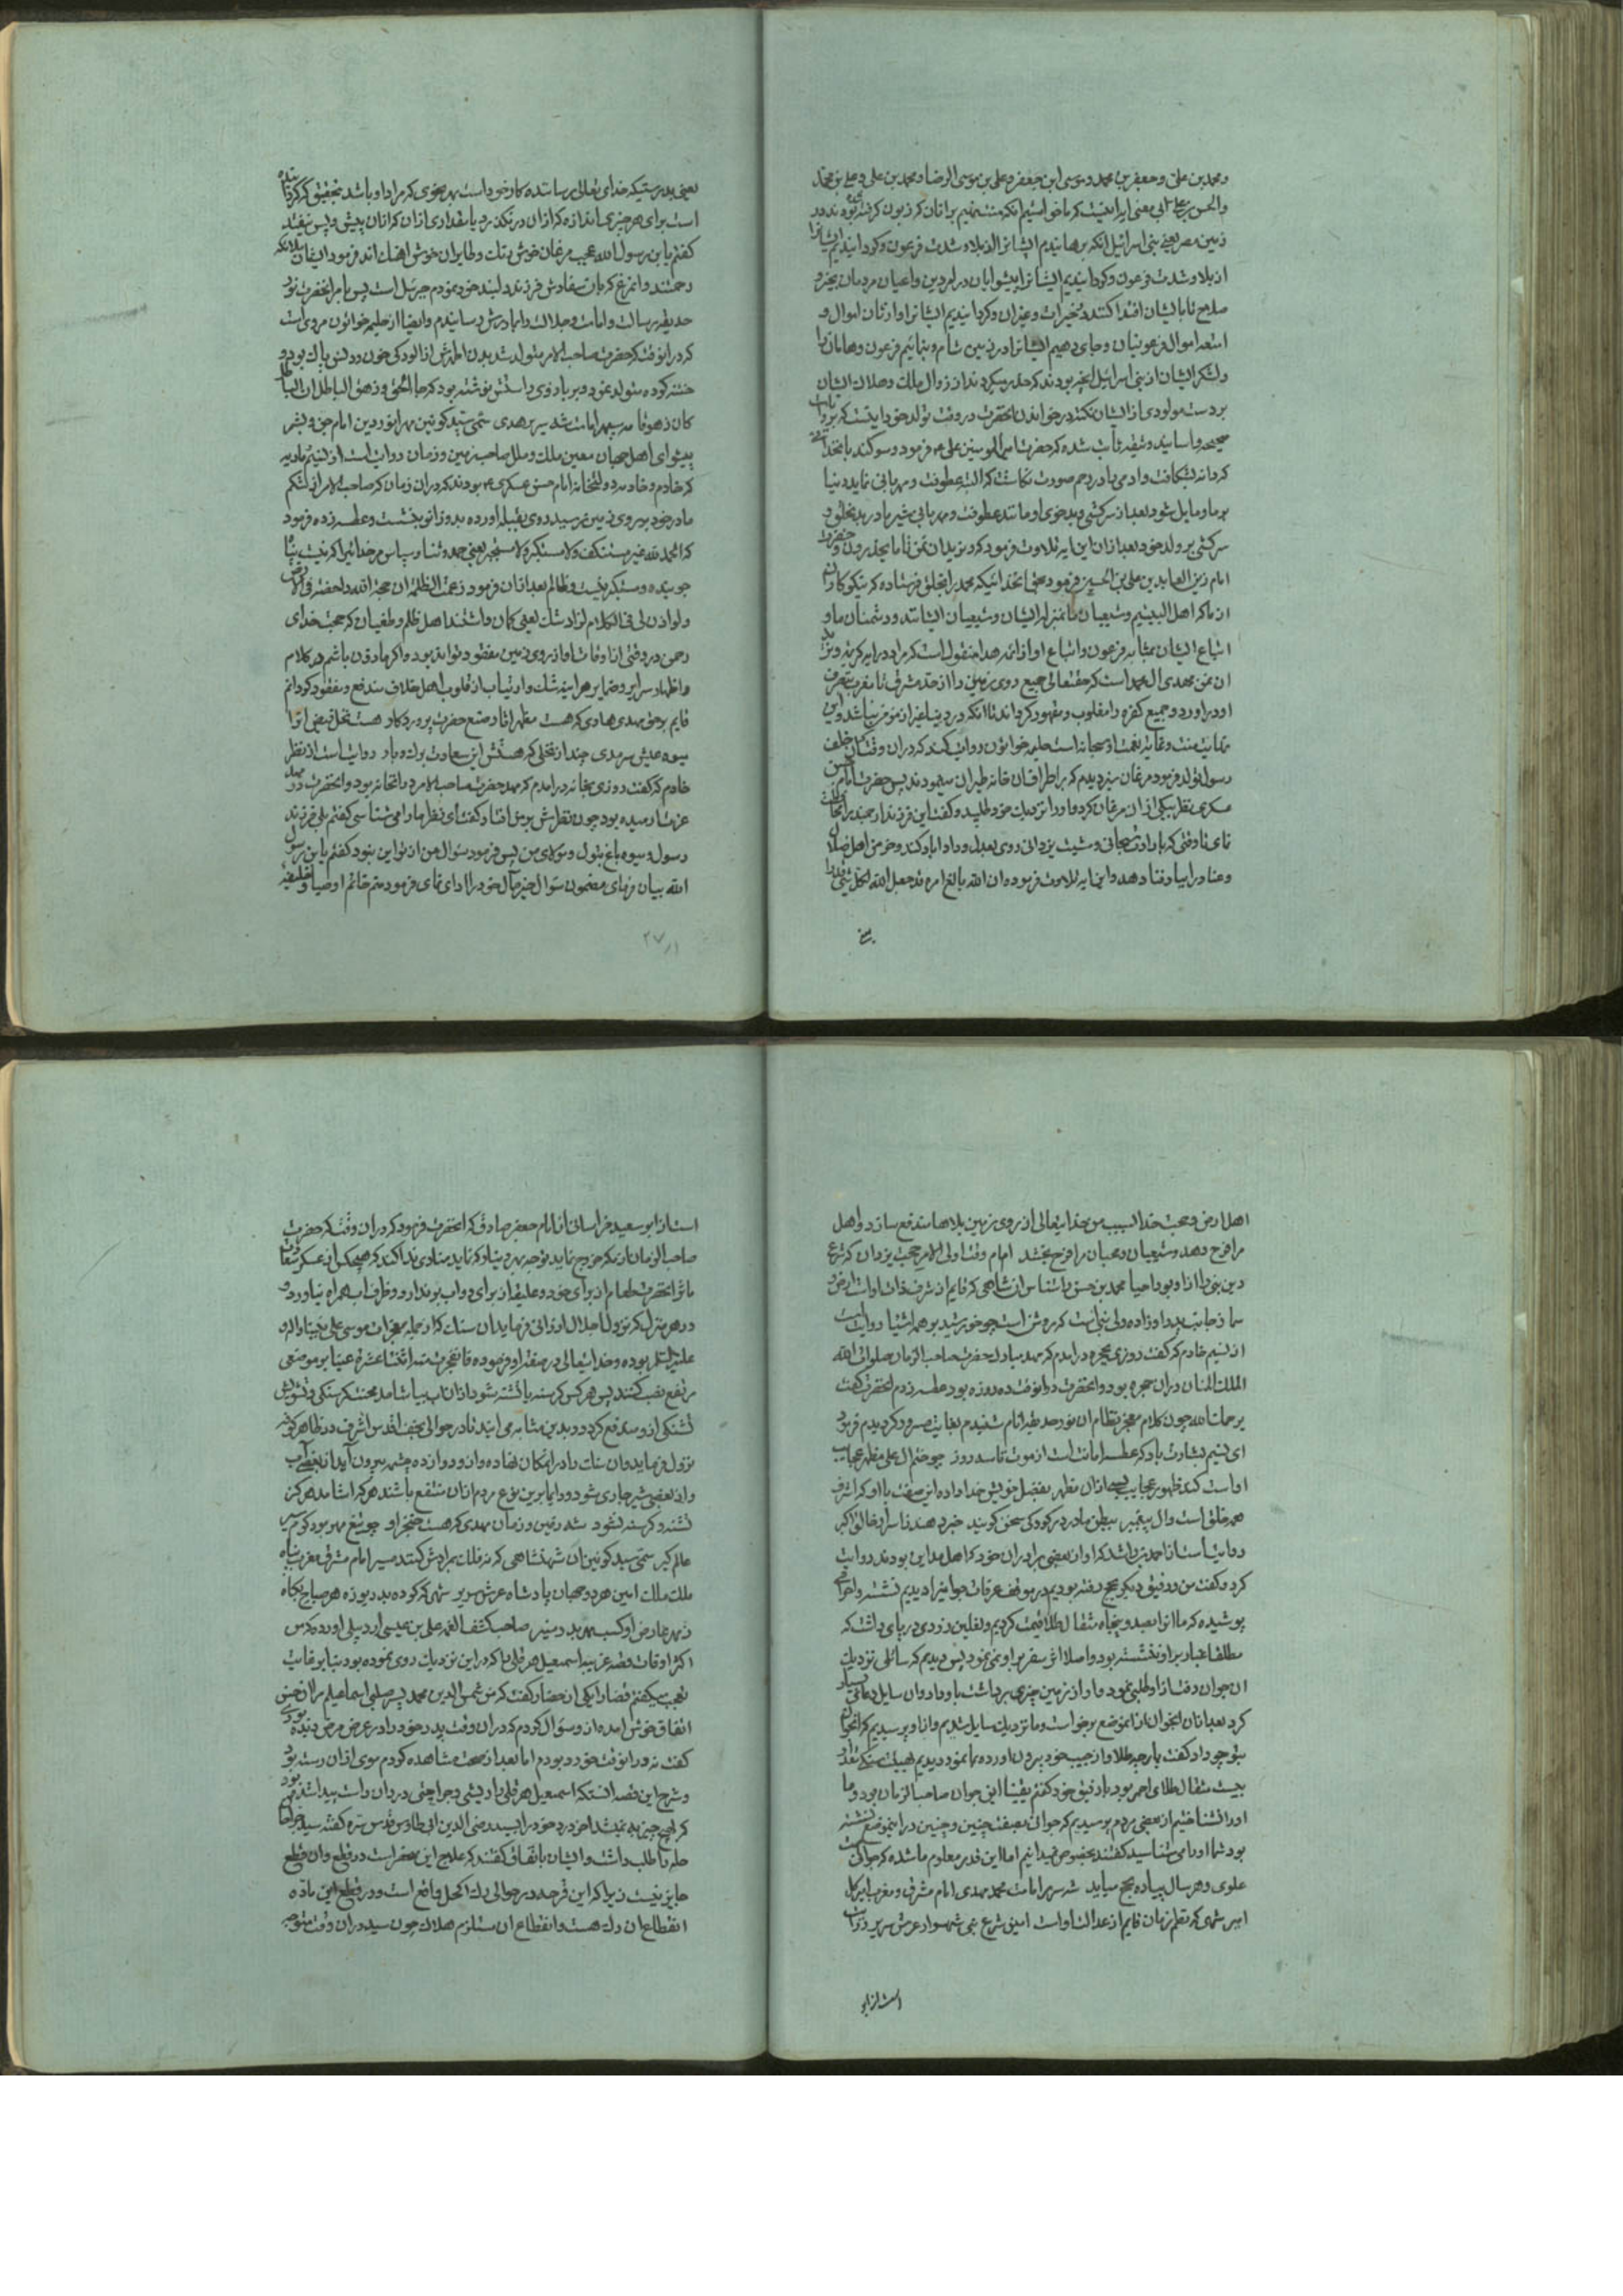 و محمد بن علی و جعفر بن محمد و موسی ابن جعفر و علی بن موسی الرضا و محمد بن علی و علی بن محمد
زمین مصر یعنی بنی اسرائیل انکه برهانیدیم ایشانرا از بلا و شدت فرعون و کردانیدیم ایشانرا
از بلا و شدت فرعون و کردانیدیم ایشانرا پیشوایان در امر دین و داعیان مردمان بخیر و
صلاح تا بایشان اقتدا کنند در خیرات و غیران و کردانیدیم ایشانرا وارثان اموال و
امتعه اموال فرعونیان و جای دهیم ایشانرا در زمین شام و بنمائیم فرعون و هامان را
و لشکر ایشان از بنی اسرائیل انچه بودند که حذر میکردند از زوال ملک و هلاک ایشان
بر دست مولودی از ایشان
صحیحه و اسانید معتبره ثابت شده که حضرت امیر المومنین علی فرمود و سوکند بانخدای
بر ما مایل شود بعد از سرکشی و بدخوی او مانند عطوفت و مهربانی شیر مادر بدخلق و
سرکشی بر ولد خود بعد از ان این ایه تلاوت فرمود که و نرید ان نمن تا ما یحذرون و حضرت
امام زین العابدین علی بن الحسین فرمود بحق انخدائیکه محمد را بخلق فرستاده که نیکوکاران
از ما که اهل البیتیم و شیعیان ما بمنزله ایشان و شیعیان ایشانند و دشمنان ما و
اتباع ایشان بمثابه فرعون و اتباع او از ائمه هدا منقول است که مراد در ایه کریمه
ان نمن مهدی ال محمد است که حقتعالی جمیع روی زمین را از حد مشرق تا مغرب بتصرف
او در اورد و جمیع کفره را مغلوب و مقهور کرداند تا انکه در دنیا غیر از مومن نباشد و این
رسول تولد فرمود مرغان سبز دیدم که بر اطراف ان خانه طیران مینمودند پس حضرت امام حسن
عسکری نظر بیکی از ان مرغان کرد و او را نزدیک خود طلبید و کفت این فرزند ارجمند مرا محافظت
نمای تا وقتی که بارادت سبحانی و مشیت یزدانی روی بعدل و داد اباد کند و خرمن اهل ضلال
و عناد را بباد فنا دهد و این ایه تلاوت فرمود ان الله بالغ امره قد جعل الله لکل شئ قدرا
یعنی
یعنی بدرستیکه خدای تعالی رساننده کار خود است بهر نحوی که مراد او باشد بتحقیق که کرداننده
است برای هر چیزی اندازه که از ان در نکذرد یا مقداری از ان که از ان پیش و پس نیفتد
کفتم یا بن رسول الله عجب مرغان خوش رنک و طایران خوش اهنک اند فرمود ایشان ملائکه
رحمتند و انمرغ که بان سفارش فرزند دلبند خود نمودم جبرئیل است پس بامر انحضرت نور
حدیقه رسالت و امامت و جلالت را بمادرش رسانیدم و ایضا از حلیمه خواتون مرویست
که در انوقت که حضرت صاحب الامر متولد شد بدن اطهرش از الودکی خون و دنس پاک بود و
ختنه کرده متولد نمود و بر بازوی راستش نوشته بود که جاء الحق و زهق الباطل ان الباطل
کان زهوقا مه سپهر امامت شه سریر هدی سمی سید کونین مهر انور دین امام جن و بشر
پیشوای اهل جهان معین ملک و ملل صاحب زمین و زمان روایت است از نسیم و ماریه
که خادم و خادمه دولتخانه امام حسن عسکری بودند که در ان زمان که صاحب الامر از شکم
مادر خود بر روی زمین رسید روی بقبله اورده بدو زانو بنشست و عطسه زده فرمود
که الحمد لله غیر مستنکف و لا مستکبر یعنی حمد و ثنا و سپاس مر خدائیرا که نیست
جوینده و متکبر نیست و ظالم بعد از ان فرمود زعمت الظلمة ان حجة الله داحضة فی الارض
و لو اذن لی فی الکلام لزال الشک یعنی کمان داشتند اهل ظلم و طغیان که حجت خدای
رحمن در وقتی از اوقات از روی زمین مفقود تواند بود و اکر ماذون باشم در کلام
و اظهار سرایر و ضمایر هر اینه شک و ارتیاب از قلوب اهل خلاف مندفع و مفقود کردانم
قایم بر حق مهدی هادی که هست مظهر اثار صنع حضرت پروردکار هست نخل فیض انرا
میوه عیش سرمدی چند از نخلی که هستش این سعادت برک و بار روایت است از نظر
خادم که کفت روزی بخانه درامدم که مهد حضرت صاحب الامر در انخانه بود و انحضرت در مهد
عزت ارمیده بود چون نظرش بر من افتاد کفت ای نظر ما را می شناسی کفتم بلی فرزند
رسول و میوه باغ بتول و مولای من پس فرمود سؤال من از تو این نبود کفتم یا بن رسول
الله بیان فرمای مضمون سؤال خیر مآل خود را ادای نمای فرمود منم خاتم اوصیا و خلیفه
۲۷٫۱
اهل ارض و محبت خدا بسبب من خدایتعالی از روی زمین بلاها مندفع سازد و اهل
مرا فرح دهد و شیعیان و محبان مرا فرح بخشد امام وقت اولی الامر حجت یزدان که شرع
دین نبی را ازو بود احیا محمد بن حسن را شناس ان شاهی که قایم از شرف ذات اوست ارض و
سما
از نسیم خادم که کفت روزی بحجره درامدم که مهد مبارک حضرت صاحب الزمان صلوات الله
الملک المنان دران حجره بود و انحضرت در انوقت ده روزه بود عطسه زدم انحضرت کفت
یرحمک الله چون کلام معجز نظام ان نور حدیقه انام شنیدم بغایت مسرور کردیدم فرمود
ای نسیم بشارت باد که عطسه امانست از موت تا سه روز چو ختم ال علی مظهر عجایب
همه خلق است و ال پیغمبر ببطن مادر در کودکی سخن کویند خبر دهند ز اسرار خالق اکبر
روایتست از احمد بن راشد که او از بعضی برادران خود که اهل مداین بودند روایت
کرد و کفت من و رفیقی دیکر بحج رفته بودیم در موقف عرفات جوانیرا دیدیم نشسته و احرامی
پوشیده که ما انرا بصد و پنجاه مثقال طلا قیمت کردیم و نعلین زردی در پای داشت که
مطلقا غبار بر او ننشسته بود و اصلا اثر سفر بر او نمی نمود پس دیدیم که سائلی نزدیک
ان جوان رفت از او طلبی نمود و او از زمین چیزی برداشت باو داد و ان سایل دعای بسیار
کرد بعد از ان انجوان از انموضع برخواست و ما نزدیک سایل شدیم و از او پرسیدیم که انجوان
بتو چه داد کفت پارچه طلا و از جیب خود بیرون اورده بما نمود دیدیم
بیست مثقال طلای احمر بود با رفیق خود کفتم یقینا این جوان صاحب الزمان بود و ما
او را نشناختیم از بعضی مردم پرسیدیم که جوانی بصفت چنین و چنین در اینموضع نشسته
بود شما او را می شناسید کفتند بخصوص نمیدانیم اما این قدر معلوم ما شده که جوانی است
علوی و هر سال پیاده بحج میاید شه سریر امامت محمد مهدی امام مشرق و مغرب امیر کل
است از ابو
است از ابو سعید خراسانی از امام جعفر صادق که انحضرت فرمود که دران وقت که حضرت
صاحب الزمان از مکه خروج نماید
ماثر انحضرت طعام از برای خود و علیق از برای دواب بر ندارد و ظرف اب همراه نیاورد و
در هر منزل که نزول اجلال ارزانی فرماید ان سنک که از جمله معجزات موسی علی نبینا و اله و
علیه السلم بوده و خدایتعالی در صفت او فرموده فانفجرت منه اثنتا عشرة عینا بر موضعی
مرتفع نصب کنند پس هر کس کرسنه یا تشنه شود از ان اب بیاشامد محنت کرسنکی و تشویش
تشنکی ازو مندفع کردد و بدین مثابه می ایند تا در حوالی نجف اقدس اشرف در ظاهر کوفه
نزول فرماید و ان سنک را در انمکان نهاده و از و دوازده چشمه بیرون آید از بعضی آب
و از بعضی شیر جاری شود و دایما برین نوع مردم از ان منتفع باشند هر که اشامد هرکز
تشنه و کرسنه نشود شه زمین و زمان مهدی که هست خنجر او
ملک ملک امین هر دو جهان پادشاه عرش سریر
صاحب کشف الغمه علی بن عیسی اردبیلی اورده که من
اکثر اوقات قصه غریبه اسمعیل هرقلی را که در این نزدیک روی نموده بود بنا بر غایت
تعجب میکفتم قضا را یکی از حضار کفت که من شمس الدین محمد پسر صلبی اسماعیلم مرا ازین حسن
اتفاق خوش امده ازو سؤال کردم که دران وقت پدر خود را در عرض مرض دیده بودی
کفت نه در انوقت خورد بودم اما بعد از صحت مشاهده کردم موی از ان رسته بود
و شرح این قصه انستکه اسمعیل هرقلی را ریشی و جراحتی در ران راست پیدا شده بود
که بهیچ چیز به نمیشد اخر درد خود را بسید رضی الدین ابی طاوس قدس سره کفته سید جراحان
حله را طلب داشت و ایشان باتفاق کفتند که علاج این منحصر است در قطع و ان قطع
جایز نیست زیرا که این قرحه در حوالی رک اکحل واقع است و در قطع این ماده
انقطاع ان رک هست و انقطاع ان مستلزم هلاک چون سید دران وقت متوجه